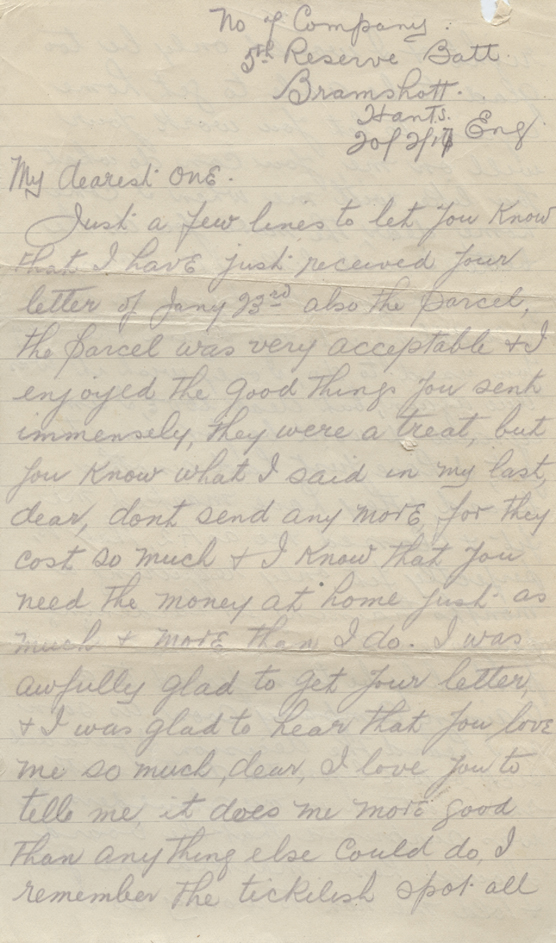 No 7 Company.
5th Reserve Batt.
Bramshott.
Hants.
Eng.
20/2/17
My dearest one.
Just a few lines to let you know
that I have just received your
letter of Jany 23rd also the parcel,
the parcel was very acceptable & I
enjoyed the good things you sent
immensely, they were a treat, but
you know what I said in my last,
dear, dont send any more, for they
cost so much & I know that you
need the money at home just as
much & more than I do. I was
awfully glad to get your letter,
& I was glad to hear that you love
me so much, dear, I love you to
tell me, it does me more good
than anything else could do, I
remember the tickilish spot all